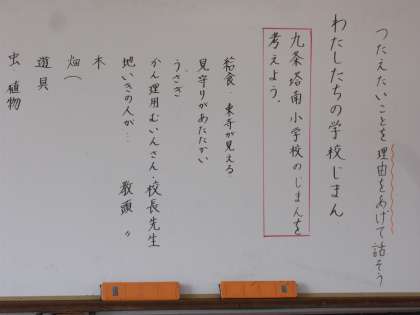 つたえたいことを理由をあげて話そう
わたしたちの学校じまん
九条塔南小学校のじまんを
考えよう。
給食…東寺が見える。
見守りがあたたかい
うさぎ
かん理用むいんさん・校長先生
地いきの人が… 教頭 〃
木
畑(
遊具
虫 植物